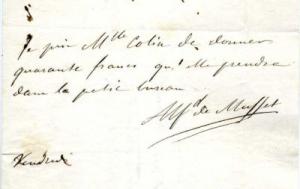 Je prie Mlle Colin de donner
quarante francs qu'elle prendra
dans le petit bureau
Alfd de Musset
Vendredi